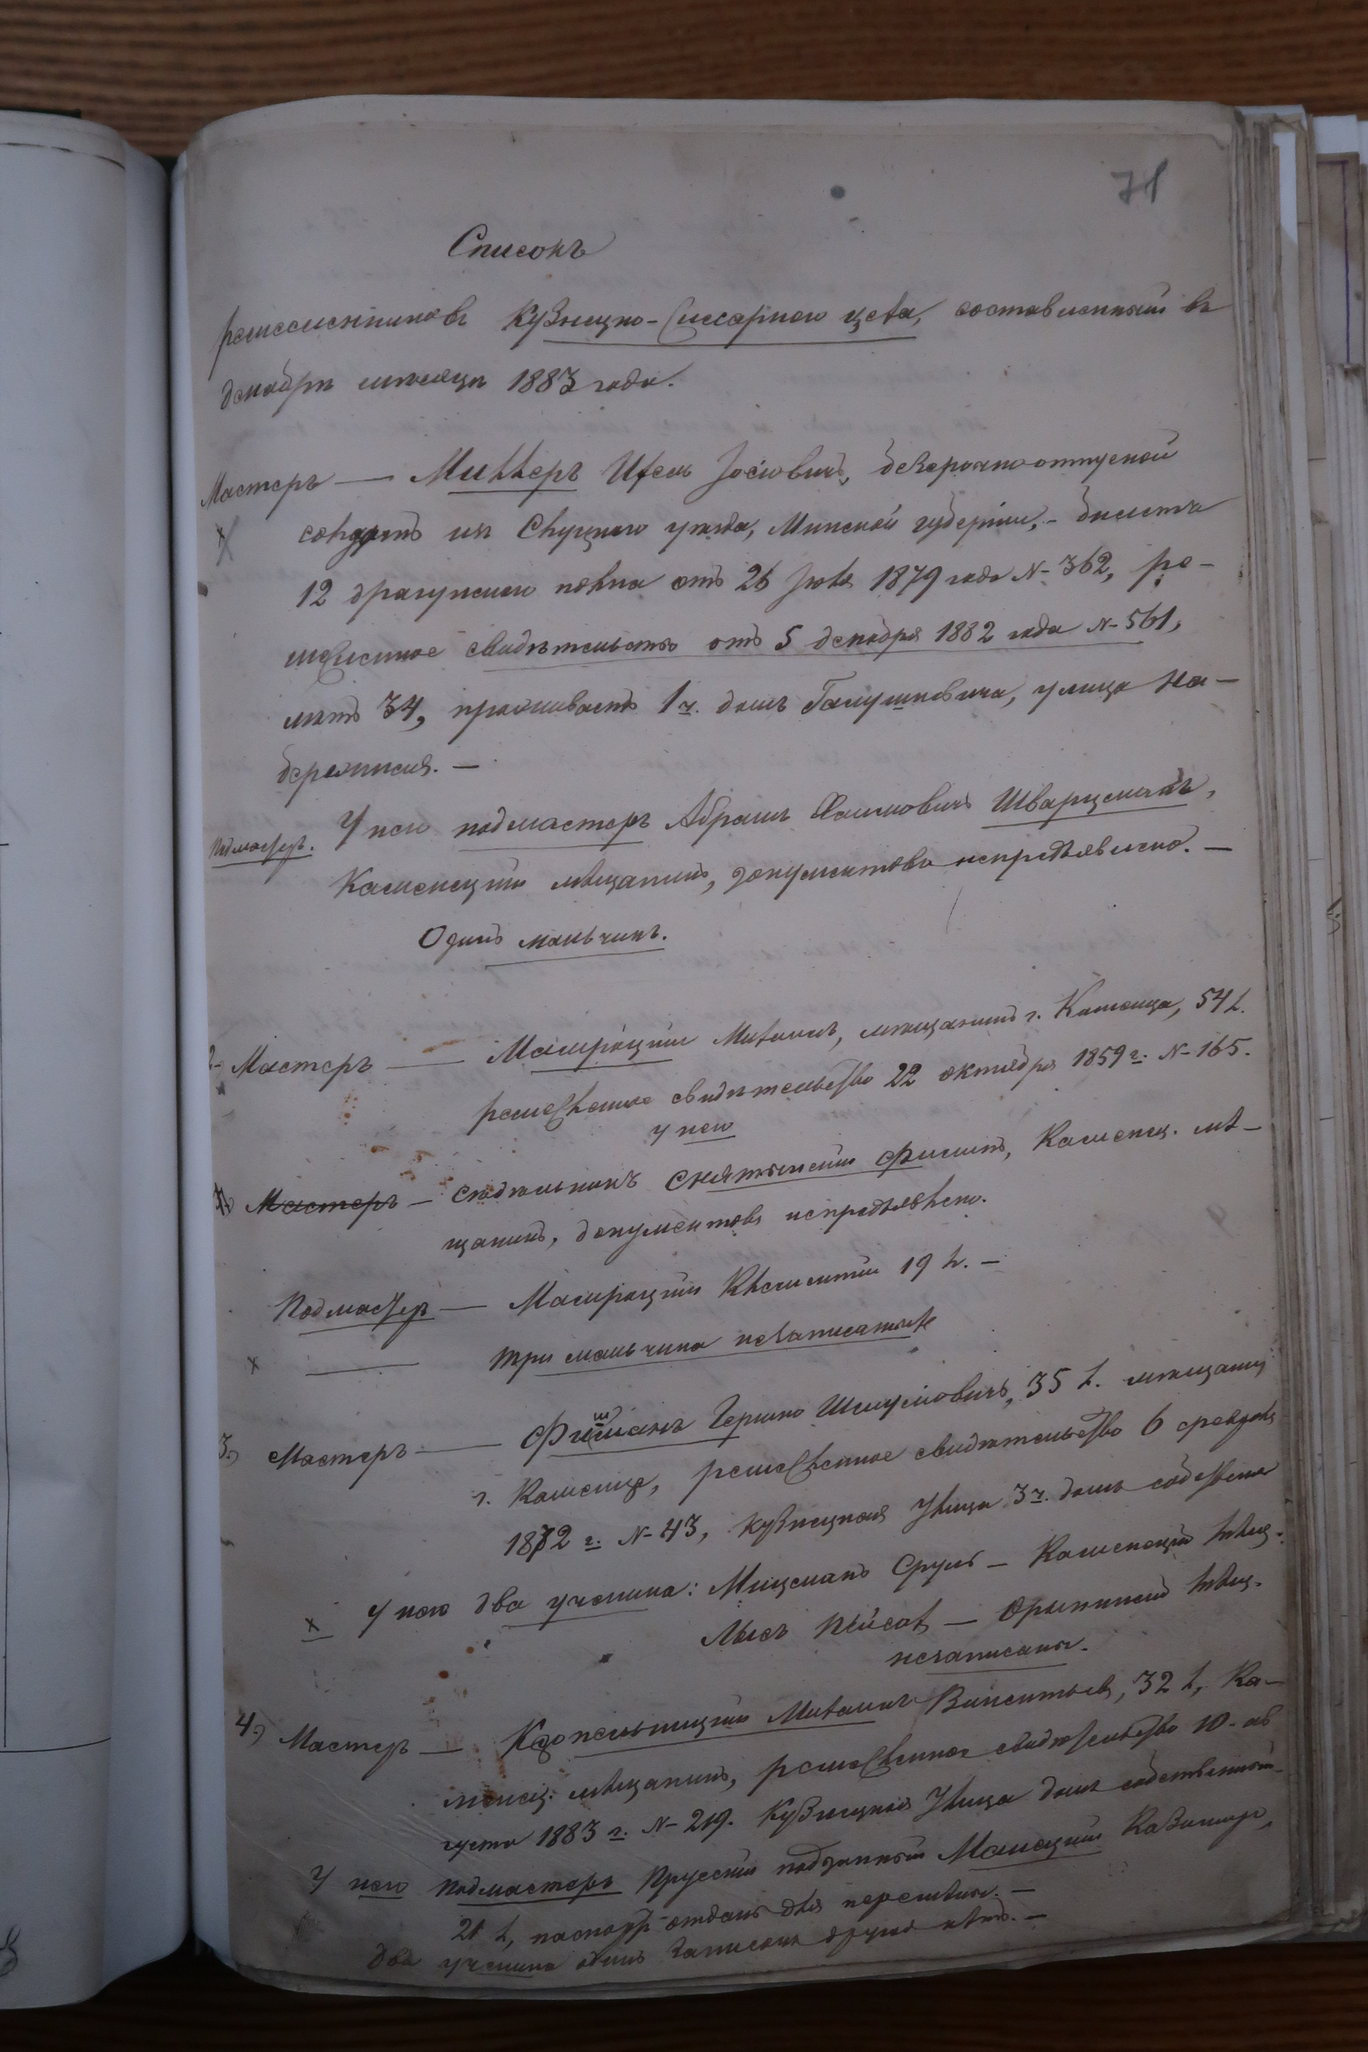 71
Списокъ
ремесленниковъ Кузнецко-Слесарнаго цеха, составленный въ
декабрѣ мѣсяцѣ 1883 года.
Мастеръ — Миллеръ Ицель Іосіовичъ, безсрочноотпускной
солдатъ изъ Слуцкаго уѣзда, Минской губерніи, - билетъ
12 драгунскаго полка отъ 26 Іюля 1879 года № 362, ре-
месленное свидѣтельство отъ 5 декабря 1882 года № 561,
лѣтъ 34, проживаетъ 1 ч. домъ Галушкевича, улица На-
бережная. —
Подмастеръ. У него подмастеръ Абрамъ Хаимовичъ Шварцманъ,
Каменецкій мѣщанинъ, документовъ непредъявлено. —
Одинъ мальчикъ.
2. Мастеръ — Мошроцкій Михаилъ, мѣщанинъ г. Каменца, 54 л.
ремесленное свидѣтельство 22 октября 1859 г. № 165.
у него
Мастеръ — сподѣльникъ Снятынскій Филипъ, Каменец. мѣ-
щанинъ, документовъ непредъявлено.
Подмастеръ — Мошроцкій Климентій 19 л. —
х — три мальчика незаписаные
3) Мастеръ — Фишманъ Гершко Шмулiовичъ, 35 л. мѣщанинъ
г. Каменца, ремесленное свидѣтельство 6 февраля
1872 г. № 43, Кузнецкая улица 3 ч. домъ собствен.
х У него два ученика: Мицманъ Сруль — Каменецкій мѣщ.
Лысъ Пейсах — Орынинскій мѣщ.
незаписаны.
4) Мастеръ — Михаилъ Викентьев, 32 л, Ка-
менец. мѣщанинъ, ремесленное свидѣтельство 10 ав
густа 1883 г. № 219. Кузнецкая улица домъ собственный
У него подмастеръ Прусскій подданный Казимир,
21 л, паспортъ отданъ для перемѣны. —
два ученика одинъ записанъ другой нѣтъ. —